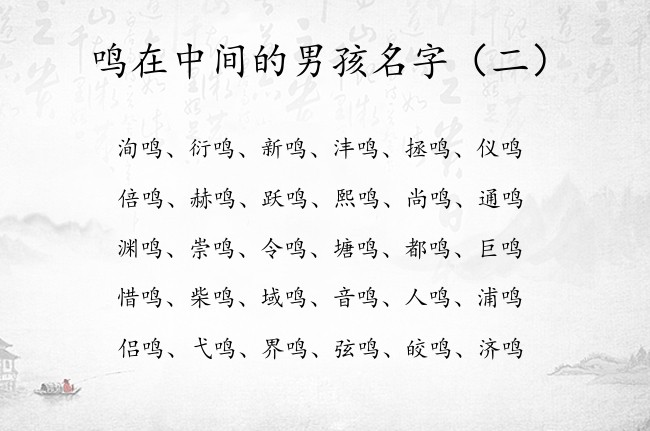 鸣在中间的男孩名字（二）
洵鸣、衍鸣、新鸣、沣鸣、拯鸣、仪鸣
倍鸣、赫鸣、跃鸣、熙鸣、尚鸣、通鸣
渊鸣、崇鸣、令鸣、塘鸣、都鸣、巨鸣
惜鸣、柴鸣、域鸣、音鸣、人鸣、浦鸣
侣鸣、弋鸣、界鸣、弦鸣、皎鸣、济鸣